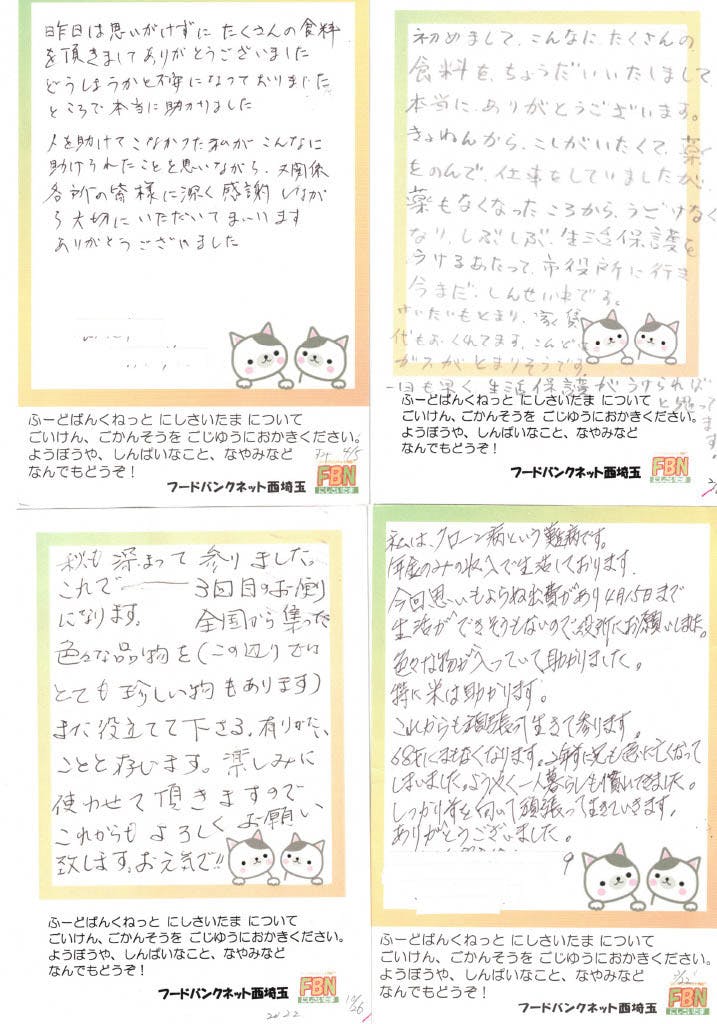 昨日は思いがけずに たくさんの食料
を頂きましてありがとうございました
どうしようかと不安になっておりました
ところで本当に助かりました
人を助けてこなかった私が こんなに
助けられたことを思いながら、又関係
各所の皆様に深く感謝しなが
ら大切にいただいてまいります
ありがとうございました
ふーどばんくねっと にしさいたま について
ごいけん、ごかんそうを ごじゆうにおかきください。
ようぼうや、しんぱいなこと、なやみなど
なんでもどうぞ！
4/5
フードバンクネット西埼玉
FBN
にしさいたま
初めまして、こんなに、たくさんの
食料を、ちょうだいいたしまして
本当に、ありがとうございます。
きょねんから、こしがいたくて、薬
をのんで、仕事をしていましたが、
薬もなくなったころから、うごけなく
なり、しぶしぶ、生活保護を
うけるあたって、市役所に行き
今まだ、しんせい中です。
けいたいもとまり、家賃
代もおくれてます。こんど、
ガスがとまりそうです。
一日も早く、生活保護がうけられば
と思ってます。
ふーどばんくねっと にしさいたま について
ごいけん、ごかんそうを ごじゆうにおかきください。
ようぼうや、しんぱいなこと、なやみなど
なんでもどうぞ！
フードバンクネット西埼玉
FBN
にしさいたま
秋も 深まって 参りました。
これで 3回目のお便り
になります。 全国から集った
色々な品物を(この辺りでは
とても 珍しい物もあります)
また役立てて下さる。有りがたい
ことと存じます。楽しみに
使わせて頂きますので
これからも よろしく お願い
致します。お元気で!!
ふーどばんくねっと にしさいたま について
ごいけん、ごかんそうを ごじゆうにおかきください。
ようぼうや、しんぱいなこと、なやみなど
なんでもどうぞ！
フードバンクネット西埼玉
FBN
にしさいたま
2022 10/26
私は、クローン病という難病です。
年金のみの収入で生活しております。
今回思いもよらね出費があり4月15日まで
生活ができそうもないので役所にお願いしました。
色々な物が入っていて助かりました。
特に米は助かります。
これからも頑張り生きて参ります。
68才にまもなくなります。2年前に兄も急に亡くなって
しまいました。ようやく一人暮らしも慣れてきました。
しっかり前を向いて頑張って生きていきます。
ありがとうございました。
ふーどばんくねっと にしさいたま について
ごいけん、ごかんそうを ごじゆうにおかきください。
ようぼうや、しんぱいなこと、なやみなど
なんでもどうぞ！
フードバンクネット西埼玉
FBN
にしさいたま